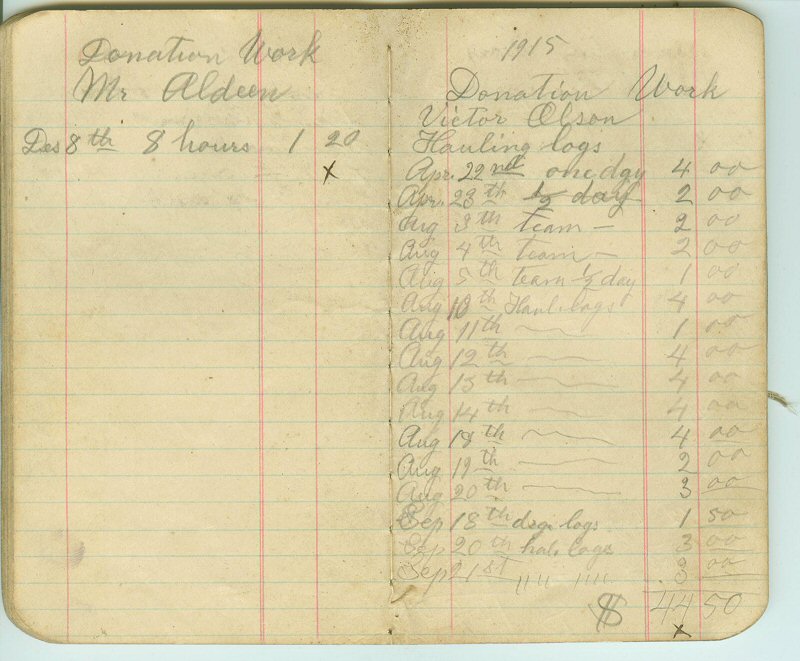 Donation Work
Mr Aldeen
Des 8th 8 hours 1 20
x
1915
Donation Work
Victor Olson
Hauling logs
Apr. 22nd one day 4 00
Apr. 23th 1/2 day 2 00
Aug 3th team — 2 00
Aug 4th team — 2 00
Aug 5th team 1/2 day 1 00
Aug 10th Haul. logs 4 00
Aug 11th 1 00
Aug 12th 4 00
Aug 13th 4 00
Aug 14th 4 00
Aug 18th 4 00
Aug 19th 2 00
Aug 20th 3 00
Sep 18th logs 1 50
Sep 20th hal. logs 3 00
Sep 21st "" "" 3 00
$ 44 50
x